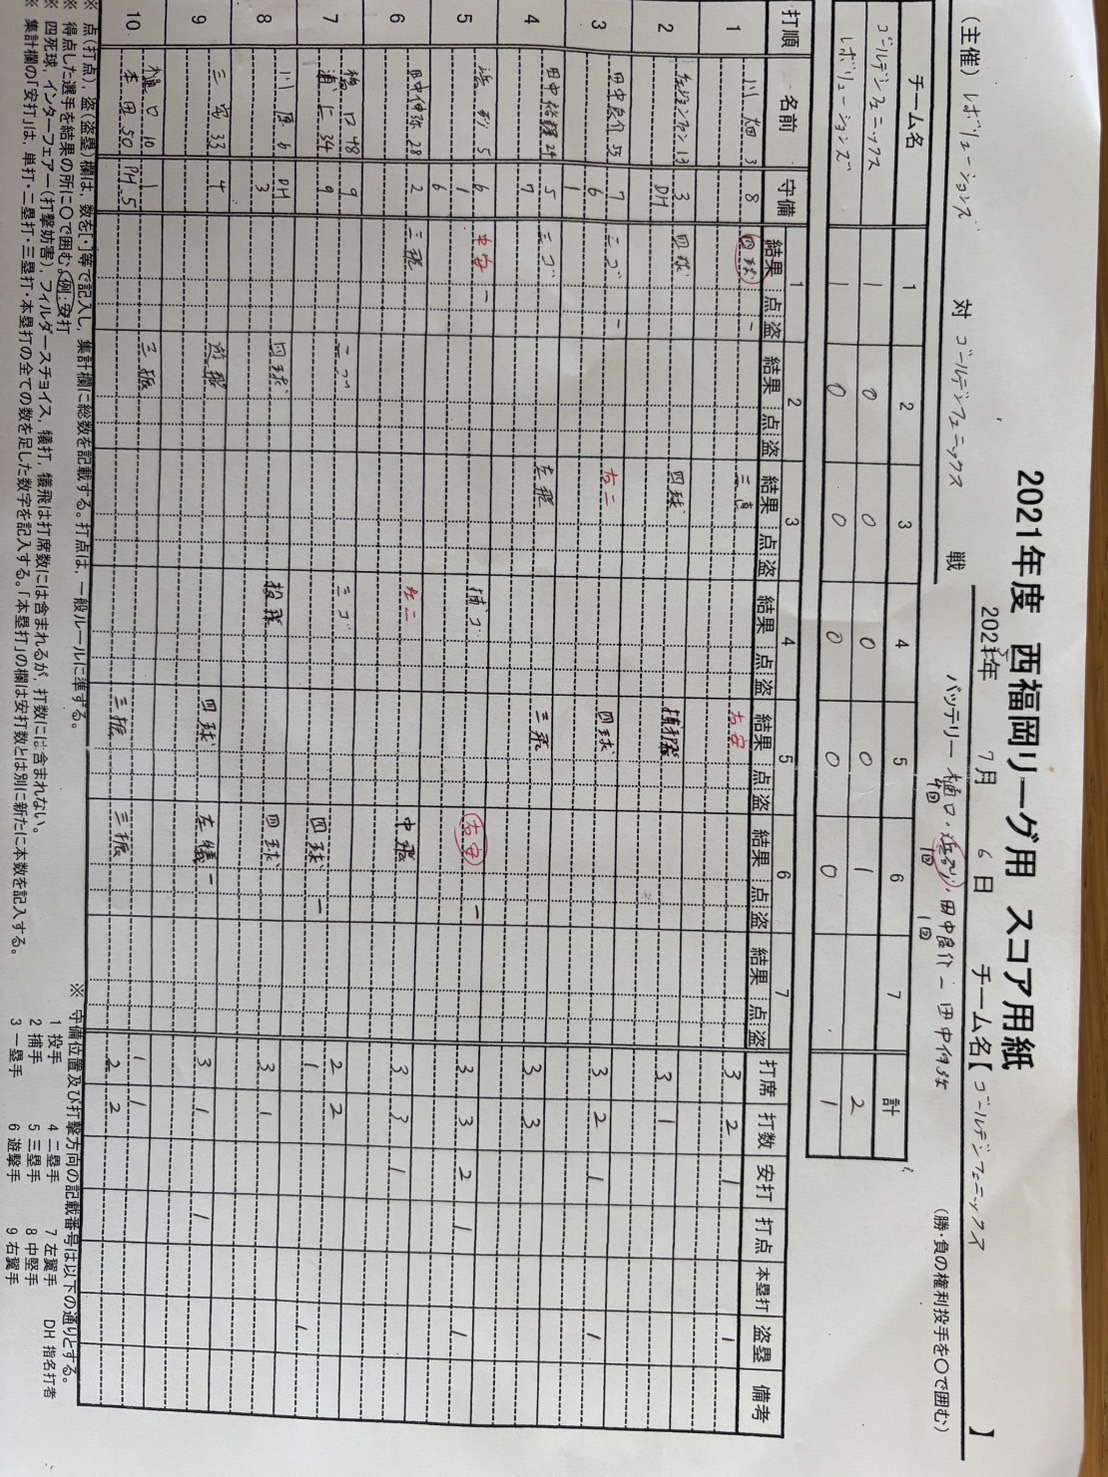 2021年度 西福岡リーグ用 スコア用紙
2025年 7月 6日 チーム名【ゴールデンフェニックス】
(主催) レボリューションズ 対 ゴールデンフェニックス 戦
バッテリー 樋口・浜砂・田中良介 - 田中伸弥
4回 1回 1回
(勝・負の権利投手を○で囲む)
チーム名 1 2 3 4 5 6 7 計
ゴールデンフェニックス 1 0 0 0 0 1 2
レボリューションズ 1 0 0 0 0 0 1
打順 名前 守備 1 2 3 4 5 6 7 打席 打数 安打 打点 本塁打 盗塁 備考
結果 点 盗 結果 点 盗 結果 点 盗 結果 点 盗 結果 点 盗 結果 点 盗 結果 点 盗
1 川畑 3 8 四球 - 三直 右安 3 2 1 1
2 13 3 四球 四球 3 1
DH
3 田中良介 55 7 二ゴ - 右二 四球 3 2 1 1
6
1
4 田中 29 5 三ゴ 左飛 三飛 3 3
7
5 浜砂 5 6 中安 - 捕ゴ 右安 - 3 3 2 1 1
1
6
6 田中伸弥 28 2 三飛 左二 中飛 3 3 1
7 橋口 48 9 二ゴ 三ゴ 2 2
浦仁 34 9 四球 - 1 1
8 川原 6 DH 四球 投飛 四球 3 1
3
9 三宮 33 4 遊飛 四球 左犠 - 3 1 1
10 樋口 10 1 三振 1 1
本田 50 PH 5 三振 三振 2 2
※ 点(打点)，盗(盗塁)欄は，数を[・]等で記入し，集計欄に総数を記載する。打点は，一般ルールに準ずる。
※ 得点した選手を結果の所に○で囲む。例:安打
※ 四死球，インターフェアー(打撃妨害)，フィルダースチョイス，犠打，犠飛は打席数には含まれるが，打数には含まれない。
※ 集計欄の「安打」は，単打・二塁打・三塁打・本塁打の全ての数を足した数字を記入する。「本塁打」の欄は安打数とは別に新たに本数を記入する。
※ 守備位置及び打撃方向の記載番号は以下の通りとする。
1 投手 4 二塁手 7 左翼手 DH 指名打者
2 捕手 5 三塁手 8 中堅手
3 一塁手 6 遊撃手 9 右翼手